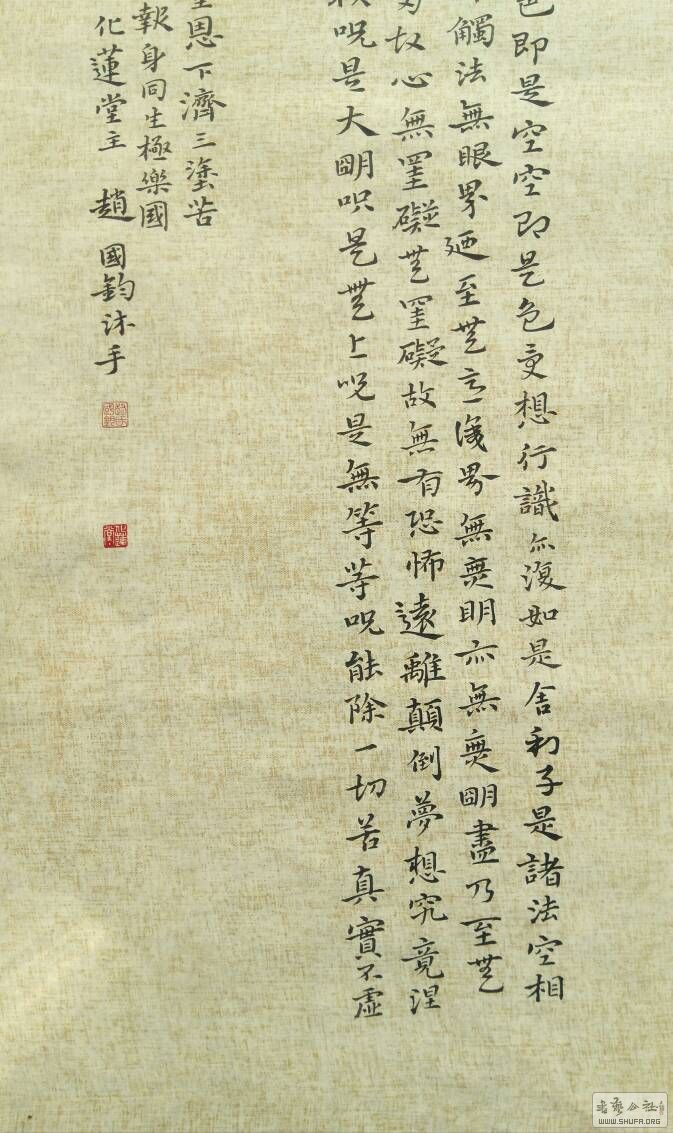 色即是空空即是色受想行識亦復如是舍利子是諸法空相
觸法無眼界廼至無意識界無無明亦無無明盡乃至無
故心無罣礙無罣礙故無有恐怖遠離顛倒夢想究竟涅
呪是大明呪是無上呪是無等等呪能除一切苦真實不虛
恩下濟三塗苦
報身同生極樂國
化蓮堂主 趙國鈞沐手
書藝公社
WWW.SHUFA.ORG